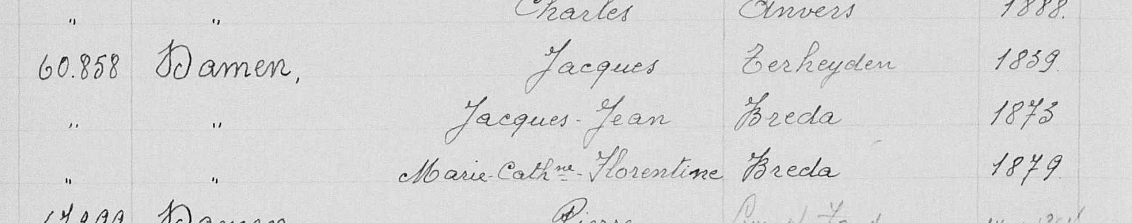 " " Charles Anvers 1888.
60.858 Damen, Jacques Terheyden 1839.
" " Jacques-Jean Breda 1873
" " Marie-Cathne-Florentine Breda 1879
Damen Pierre